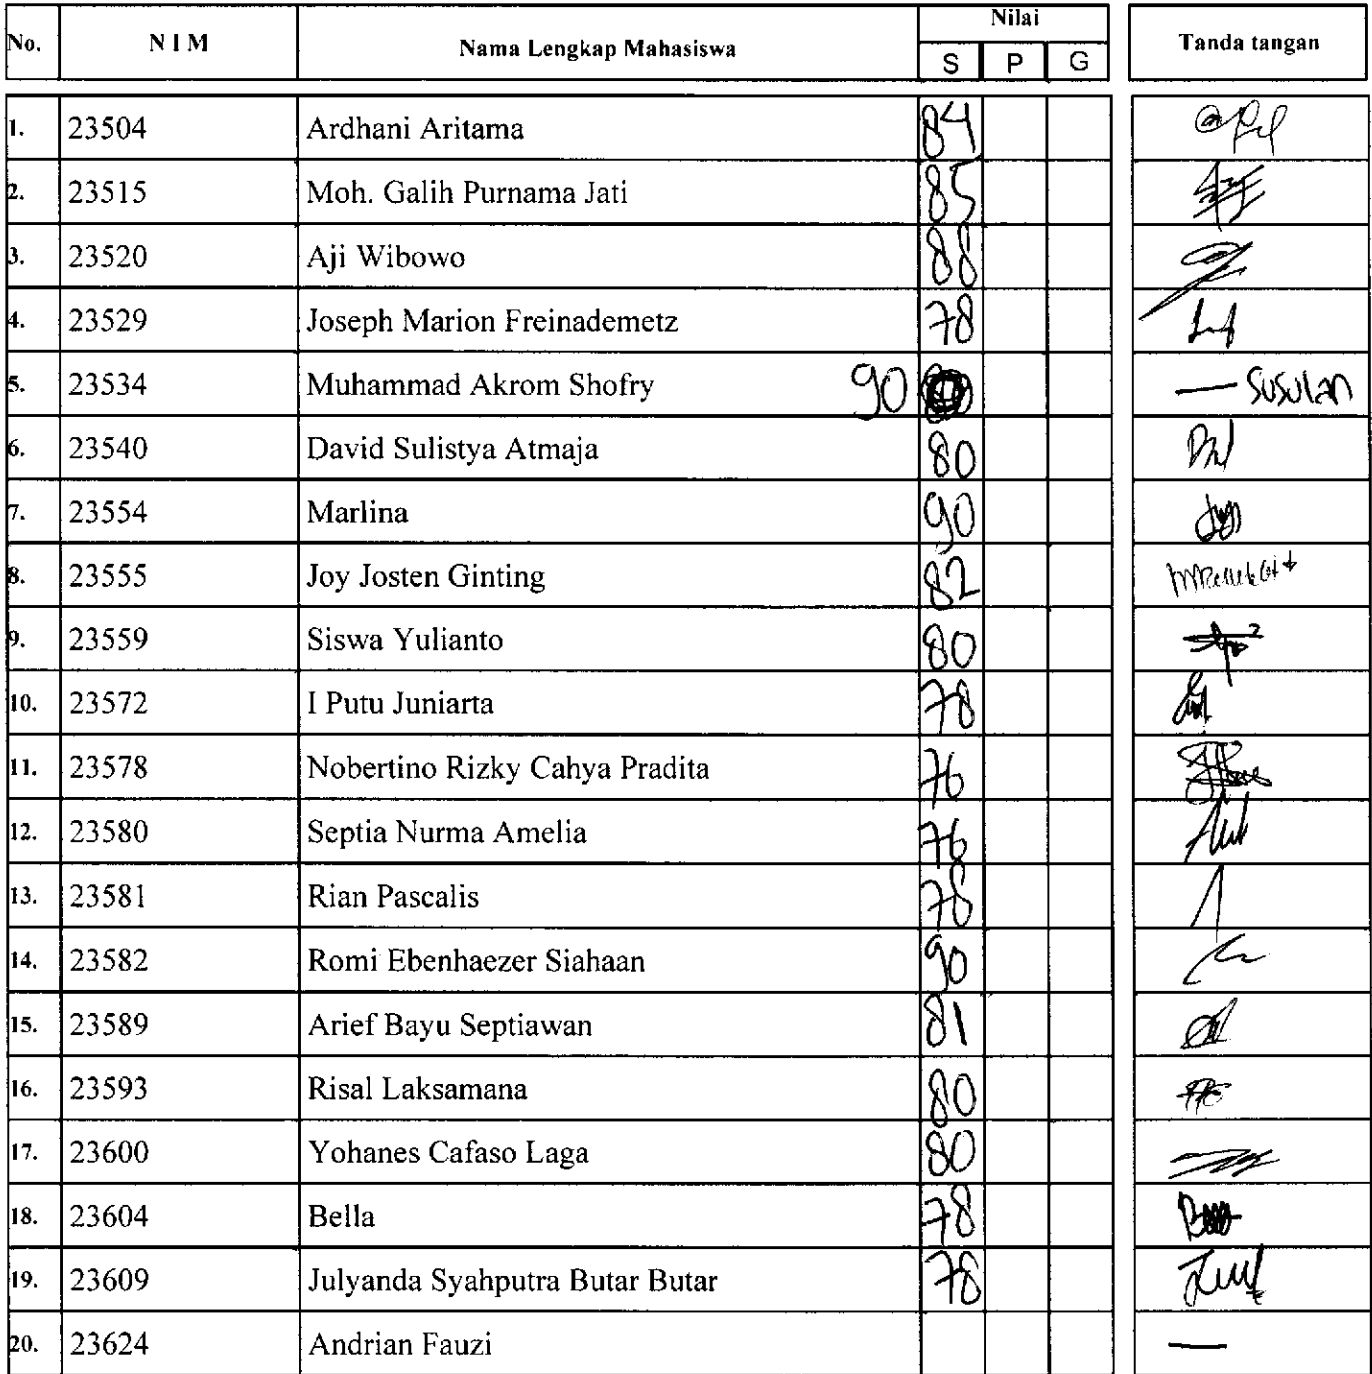 No. N I M Nama Lengkap Mahasiswa Nilai Tanda tangan
S P G
1. 23504 Ardhani Aritama 84
2. 23515 Moh. Galih Purnama Jati 85
3. 23520 Aji Wibowo 88
4. 23529 Joseph Marion Freinademetz 78
5. 23534 Muhammad Akrom Shofry 90 — Susulan
6. 23540 David Sulistya Atmaja 80
7. 23554 Marlina 90
8. 23555 Joy Josten Ginting 82
9. 23559 Siswa Yulianto 80
10. 23572 I Putu Juniarta 78
11. 23578 Nobertino Rizky Cahya Pradita 76
12. 23580 Septia Nurma Amelia 76
13. 23581 Rian Pascalis 78
14. 23582 Romi Ebenhaezer Siahaan 90
15. 23589 Arief Bayu Septiawan 81
16. 23593 Risal Laksamana 80
17. 23600 Yohanes Cafaso Laga 80
18. 23604 Bella 78
19. 23609 Julyanda Syahputra Butar Butar 78
20. 23624 Andrian Fauzi —